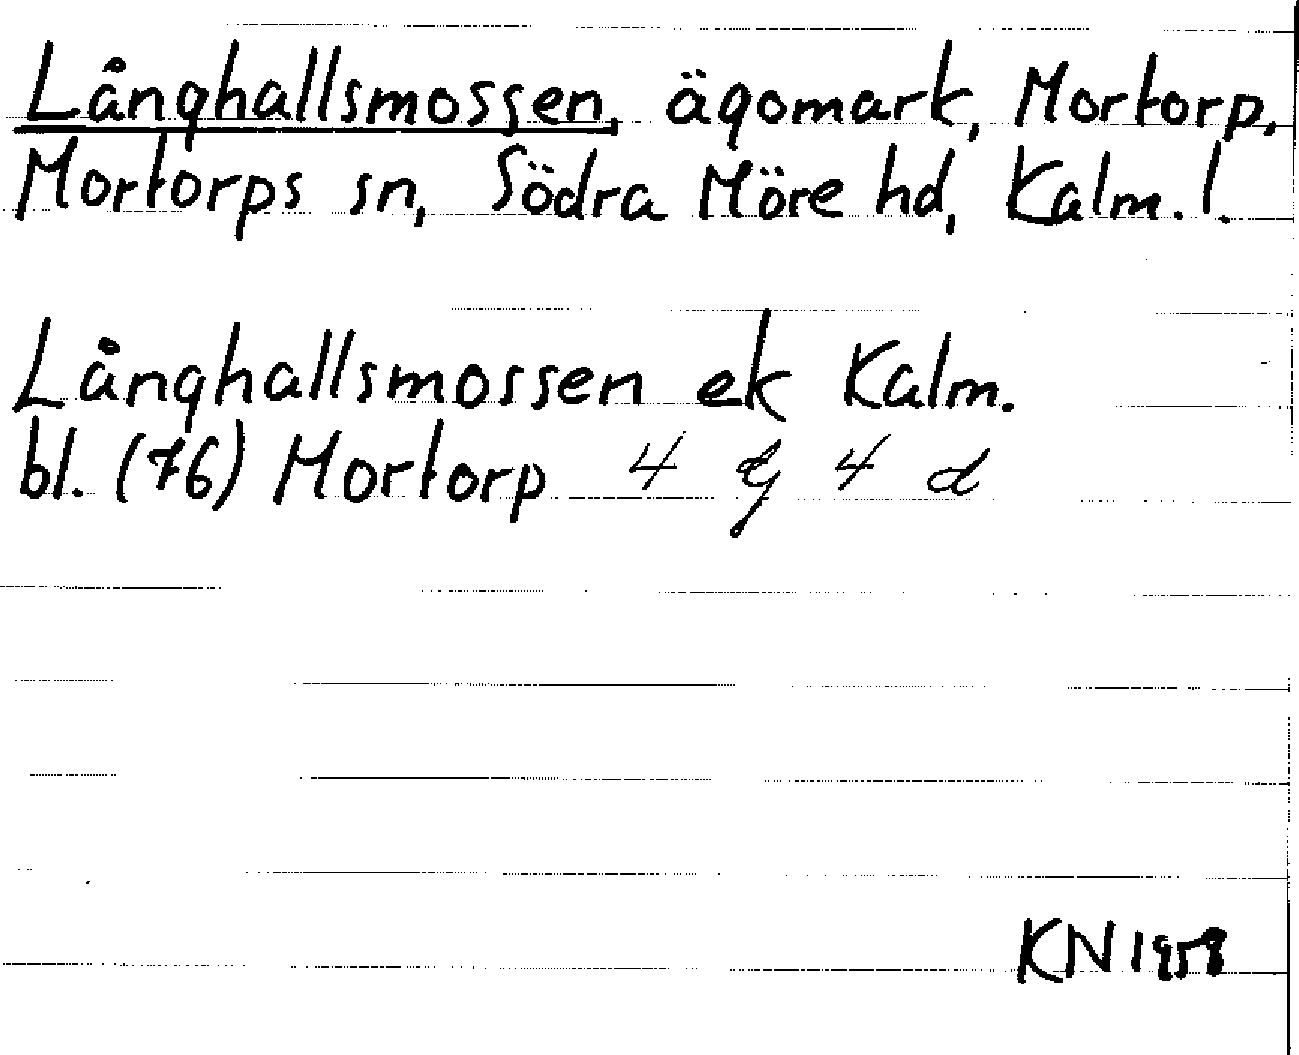 Långhallsmossen, ägomark, Mortorp,
Mortorps sn, Södra Möre hd, Kalm. l.
Långhallsmossen ek Kalm.
bl. (76) Mortorp 4 g 4 d
KN 1958